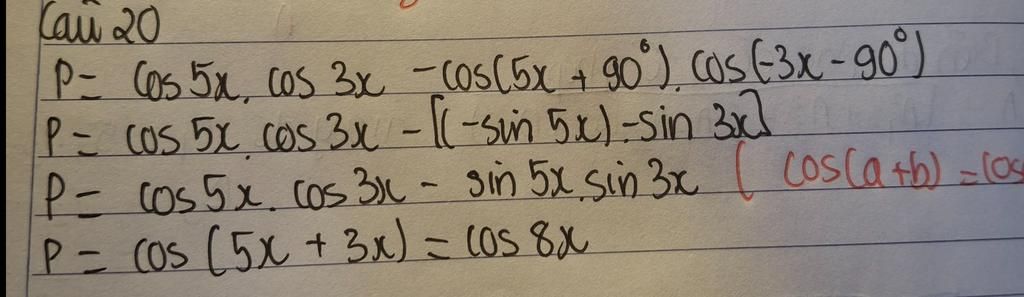 Câu 20
P = cos 5x. cos 3x - cos(5x + 90°). cos(-3x - 90°)
P = cos 5x. cos 3x - [(-sin 5x).-sin 3x]
P = cos 5x. cos 3x - sin 5x. sin 3x ( cos(a+b) = cos
P = cos (5x + 3x) = cos 8x